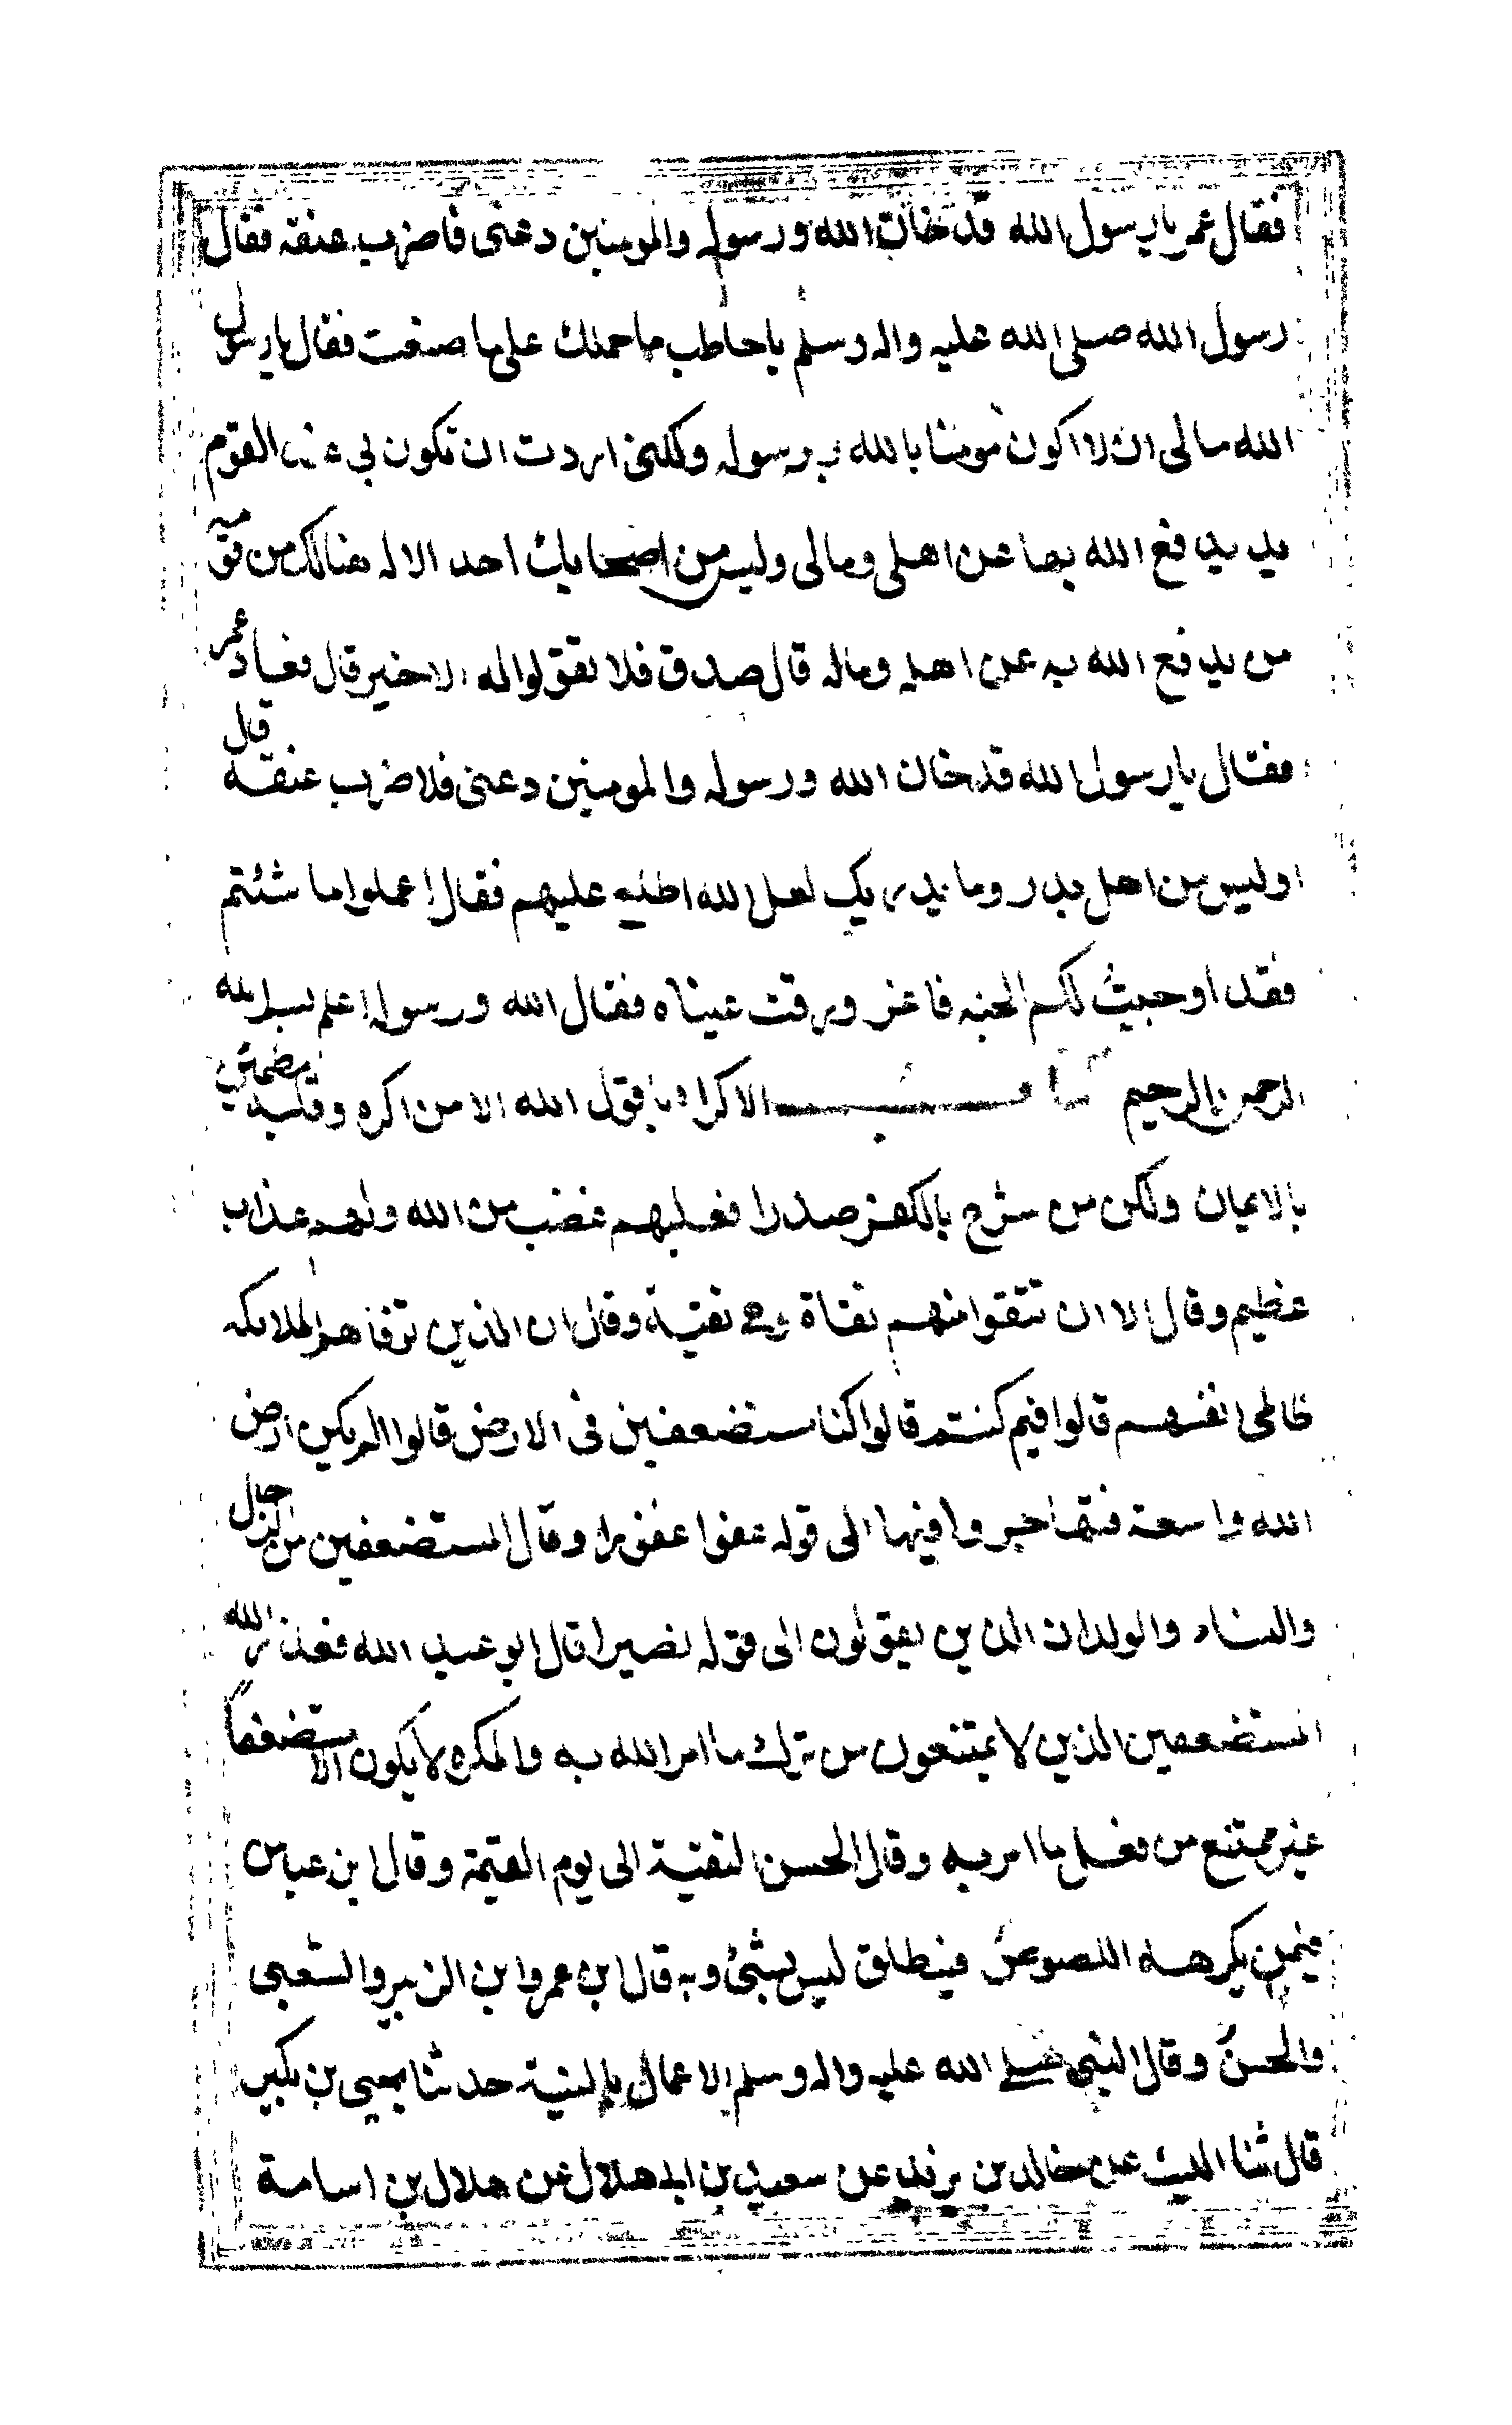 فقال عمر يا رسول الله قد خان الله ورسوله والمومنين دعنى فاضرب عنقه فقال
رسول الله صلى الله عليه واله وسلم ياحاطب ما حملك على ما صنعت فقال يا رسول
الله مالى ان لا اكون مومنا بالله وبرسوله ولكنى اردت ان تكون لى عند القوم
يد يدافع الله بها عن اهلى ومالى وليس من اصحابك احد الا له هنالك من قومه
من يدافع الله به عن اهله وماله قال صدق فلا تقولوا له الا خيرا قال فعاد عمر
فقال يا رسول الله قد خان الله ورسوله والمومنين دعنى فلاضرب عنقه قال
اوليس من اهل بدر وما يدريك لعل الله اطلع عليهم فقال اعملوا ما شئتم
فقد اوجبت لكم الجنه فاغرورقت عيناه فقال الله ورسوله اعلم بسم الله
الرحمن الرحيم الاكراه يا قول الله الا من اكره وقلبه مطمئن
بالايمان ولكن من شرح بالكفر صدرا فعليهم غضب من الله ولهم عذاب
عظيم وقال الا ان تتقوا منهم تقاة وهى تقية وقال ان الذين توفاهم الملايكه
ظالمى انفسهم قالوا فيم كنتم قالوا كنا مستضعفين فى الارض قالوا الم يكن ارض
الله واسعة فتهاجروا فيها الى قوله عفوا غفورا وقال المستضعفين من الرجال
والنساء والولدان الذين يقولون الى قوله نصيرا قال ابو عبد الله فعذر الله
المستضعفين الذين لا يمتنعون من ترك ما امر الله به والمكره لا يكون الا مستضعفا
غير ممتنع من فعل ما امر به وقال الحسن التقية الى يوم القيمة وقال ابن عباس
فيمن يكرهه اللصوص فيطلق ليس بشئ وبه قال ابن عمر وابن الزبير والشعبى
والحسن وقال النبى صلى الله عليه واله وسلم الاعمال بالنية حدثنا يحيى بن بكير
قال ثنا الليث عن خالد بن يزيد عن سعيد بن ابى هلال عن هلال بن اسامة